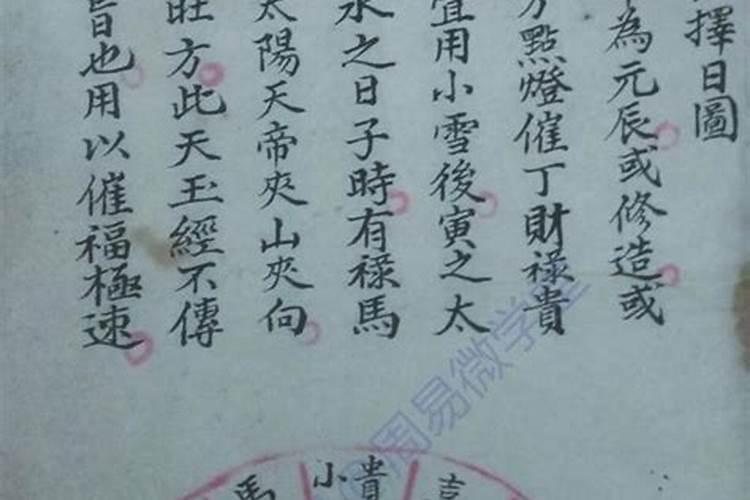 擇日圖
為元辰或修造或
方點燈催丁財祿貴
宜用小雪後寅之太
永之日子時有祿馬
太陽天帝夾山夾向
旺方此天玉經不傳
旨也用以催福極速
馬
小貴
周易微学堂